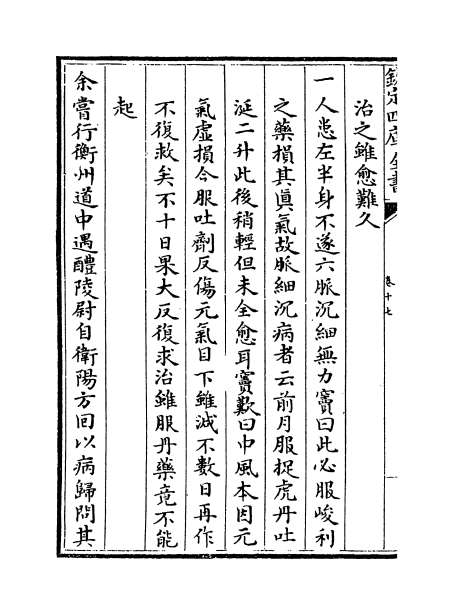 欽定四庫全書
卷十七
治之雖愈難久
一人患左半身不遂六脈沉細無力竇曰此必服峻利
之藥損其真氣故脈細沉病者云前月服捉虎丹吐
涎二升此後稍輕但未全愈耳竇歎曰中風本因元
氣虛損今服吐劑反傷元氣目下雖減不數日再作
不復救矣不十日果大反復求治雖服丹藥竟不能
起
余嘗行衡州道中遇醴陵尉自衡陽方回以病歸問其